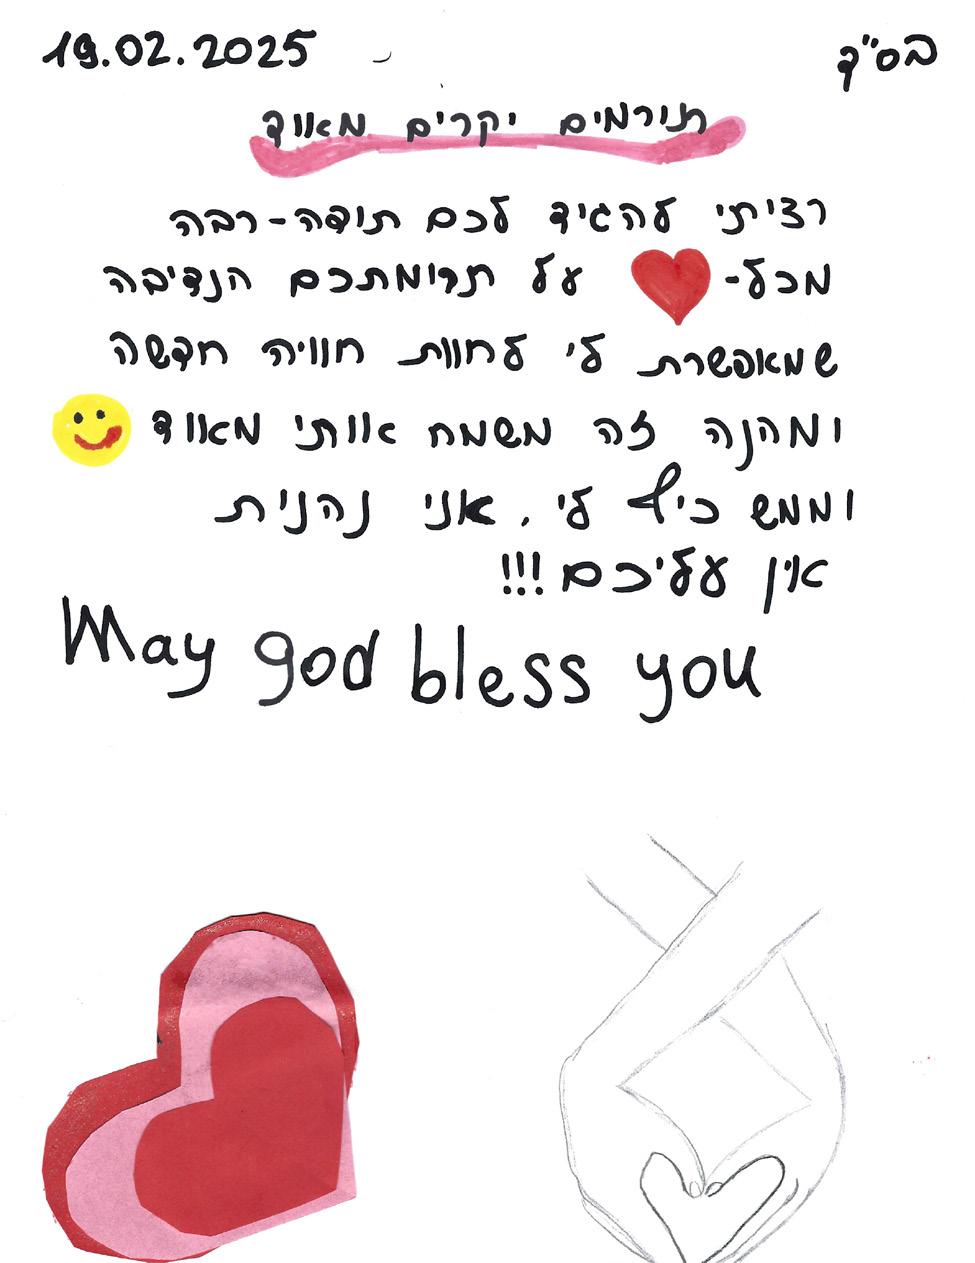 בס"ד 19.02.2025
תורמים יקרים מאוד
רציתי להגיד לכם תודה-רבה
מכל- על תרומתכם הנדיבה
שמאפשרת לי לחוות חוויה חדשה
ומהנה זה משמח אותי מאוד
וממש כיף לי. אני נהנית
אין עליכם!!!
May god bless you